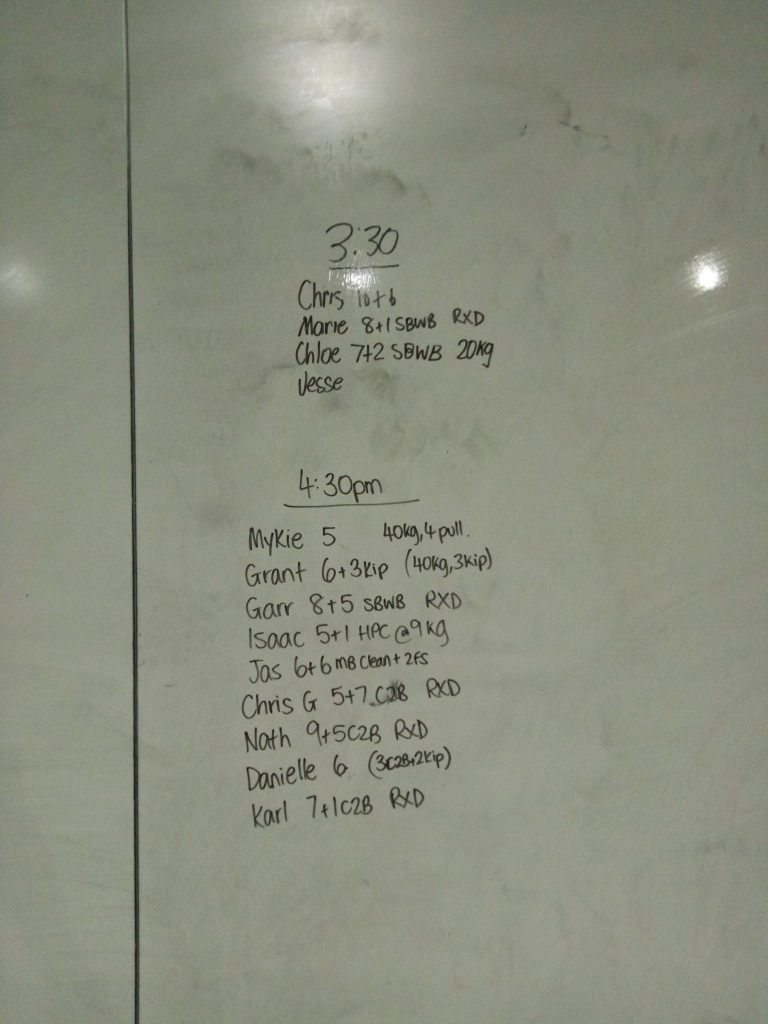 3:30
Chris 10+6
Marie 8+1 SBWB RXD
Chloe 7+2 SBWB 20kg
Jesse
4:30pm
Mykie 5 40kg, 4 pull.
Grant 6+3kip (40kg, 3kip)
Garr 8+5 SBWB RXD
Isaac 5+1 HPC @ 9kg
Jas 6+6 MB Clean + 2FS
Chris G 5+7 C2B RXD
Nath 9+5C2B RXD
Danielle 6 (3C2B+2kip)
Karl 7+1C2B RXD